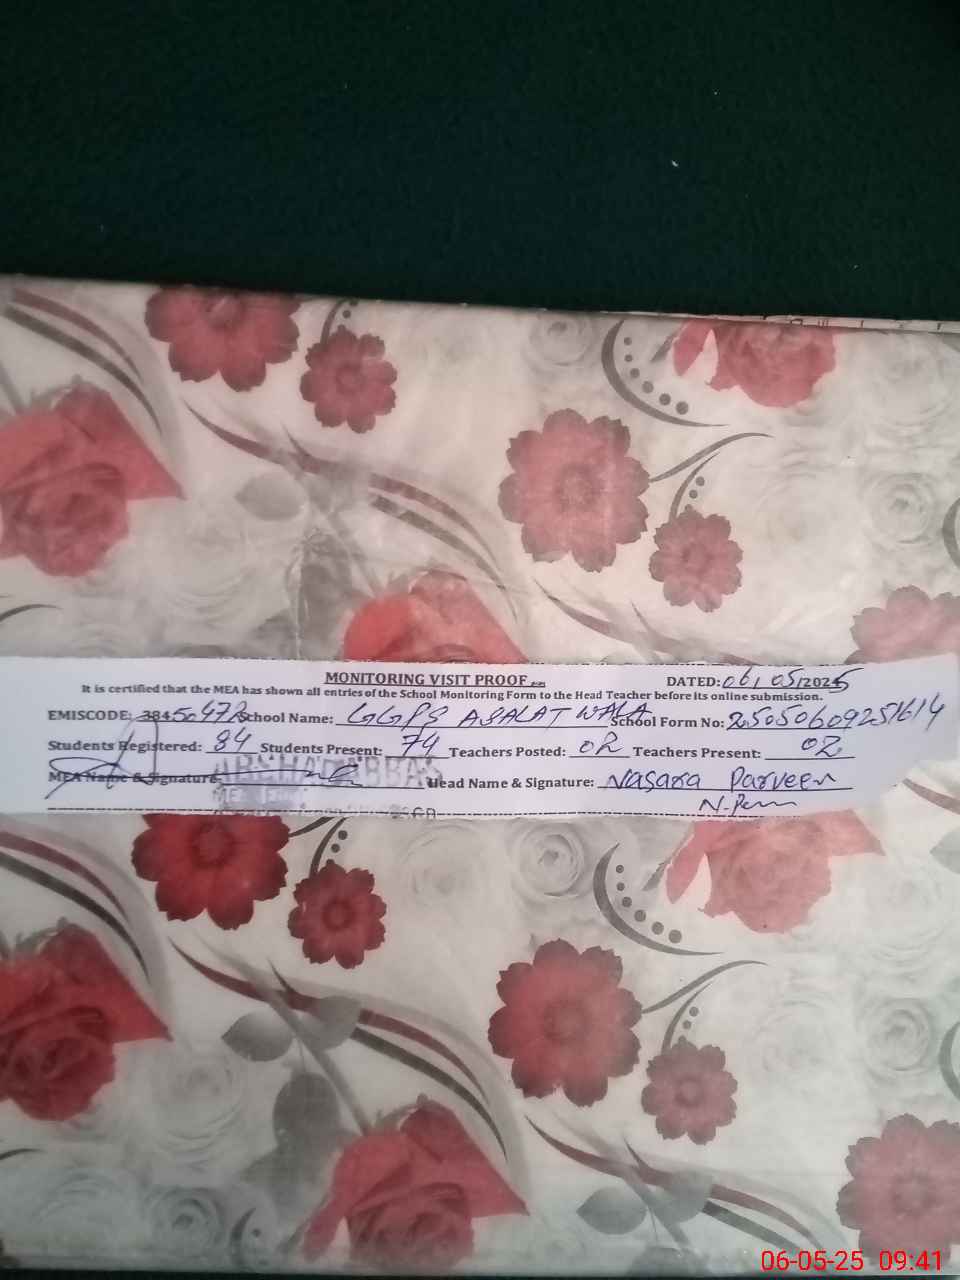 MONITORING VISIT PROOF
DATED: 06/05/2025
It is certified that the MEA has shown all entries of the School Monitoring Form to the Head Teacher before its online submission.
EMISCODE: 38450472 School Name: GGPS ASALAT WALA School Form No: 25050609251614
Students Registered: 84 Students Present: 74 Teachers Posted: 02 Teachers Present: 02
MEA Name & Signature: ARSHAD ABBAS Head Name & Signature: Nasara Parveen
06-05-25 09:41